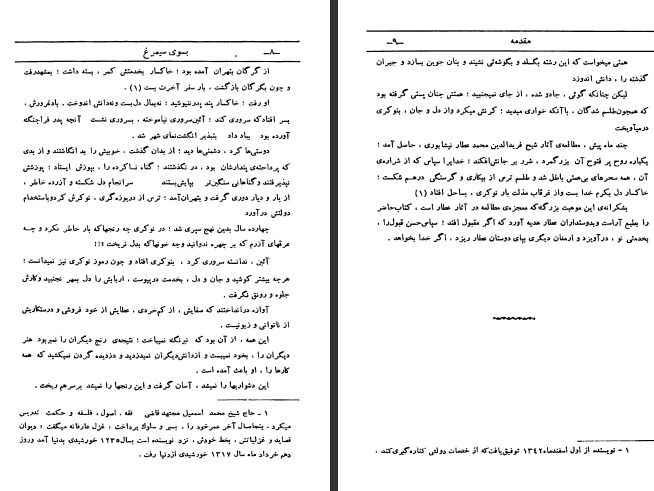 -۸-
بسوی سیمرغ
از گرگان بتهران آمده بود ؛ خاکسار بخدمتش کمر ، بسته داشت ؛ بمشهدرفت
و چون بگرگان بازگشت ، بار سفر آخرت بست (۱) .
او رفت ؛ خاکسار پند پدر ننیوشید ؛ نه‌بمال دل‌بست ونه‌دانش اندوخت . بادغرورش ،
بسر افتاد که سروری کند ؛ آئین‌سروری نیاموخته ، بسروری نشست آنچه پدر فراچنگ
آورده بود بباد داد بتبذیر انگشت‌نمای شهر شد .
دوستی‌ها کرد ، دشمنی‌ها دید ؛ از بدان گذشت ، خوبیش را بد انگاشتند و از بدی
که پرداخته‌ی پندارشان بود ، در نگذشتند ؛ گناه ناکرده را ، بپوزش ایستاد ؛ پوزشش
نپذیرفتند وگناهانی سنگین‌تر بپایش‌بستند سرانجام دل شکسته و آزرده خاطر ،
از یار و دیار دوری گرفت و بتهران‌آمد ؛ ترس از دریوزه‌گری ، نوکرش کردوباستخدام
دولتش درآورد
چهارده سال بدین نهج سپری شد ؛ در نوکری چه رنجهاکه بار خاطر نکرد و چه
عرقهای آذرم که بر چهره ندوانید وچه خونهاکه بدل نریخت ؟!!
آئین ، ندانسته سروری کرد ، بنوکری افتاد و چون رموز نوکری نیز نمیدانست ؛
هرچه بیشتر کوشید و جان و دل ، بخدمت درپیوست ، اربابش را دل بمهر نجنبید وکارش
جلوه و رونق نگرفت .
آوازه درانداختند که سفایش ، از کم‌خردی ، عطایش از خود فروشی و درستکاریش
از ناتوانی و زبونیست .
این همه ، از آن بود که نیرنگ نمیباخت ؛ نتیجه‌ی رنج دیگران را نمیربود هنر
دیگران را ، بخود نمیبست و ازدانش‌دیگران نمیدزدید و دزدیده گردن نمیکشید که همه
کارها را ، او باعث آمده است .
این دشواریها را نمیشد ، آسان گرفت و این رنجها را نمیشد برسرهم ریخت .
۱ - حاج شیخ محمد اسمعیل مجتهد قاضی فقه ، اصول ، فلسفه و حکمت تدریس
میکرد ، پنجاسال آخر عمرخود را ، بسیر و سلوك پرداخت ؛ غزل عارفانه میگفت ؛ دیوان
قصاید و غزلیاتش ، بخط خودش ، نزد نویسنده است بسال۱۲۳۵ خورشیدی بدنیا آمد وروز
دهم خرداد ماه سال ۱۳۱۷ خورشیدی ازدنیا رفت .
مقدمه
-۹-
همتی میخواست که این رشته بگسلد و بگوشه‌ئی نشیند و بنان جوین بسازد و جبران
گذشته را ، دانش اندوزد
لیکن چنانکه گوئی ، جادو شده ، از جای نمیجنبید ؛ همتش چنان پستی گرفته بود
که همچون‌طلسم شدگان ، باآنکه خواری میدید ؛ کرنش میکرد واز دل و جان ، بنوکری
درمیآویخت
چند ماه پیش ، مطالعه‌ی آثار شیخ فریدالدین محمد عطار نیشابوری ، حاصل آمد ؛
یکباره روح پر فتوح آن بزرگمرد ، شرر بر جانش‌افکند ؛ خدایرا سپاس که از شراره‌ی
آن ، همه سحرهای بی‌همتی باطل شد و طلسم ترس از بیکاری و گرسنگی درهم شکست ؛
خاکسار دل بکرم خدا بست واز غرقاب مذلت بار نوکری ، بساحل افتاد (۱)
بشکرانه‌ی این موهبت بزرگ‌که معجزه‌ی مطالعه در آثار عطار است ، کتاب‌حاضر
را بطبع آراست وبدوستداران عطار هدیه آورد که اگر مقبول افتد ؛ سپاس‌حسن قبول‌را ،
بخدمتی نو ، درآویزد و ارمغان دیگری بپای دوستان عطار ریزد ، اگر خدا بخواهد .
۱ - نویسنده از اول اسفندماه۱۳۴۲ توفیق‌یافت‌که از خدمات دولتی کناره‌گیری‌کند .